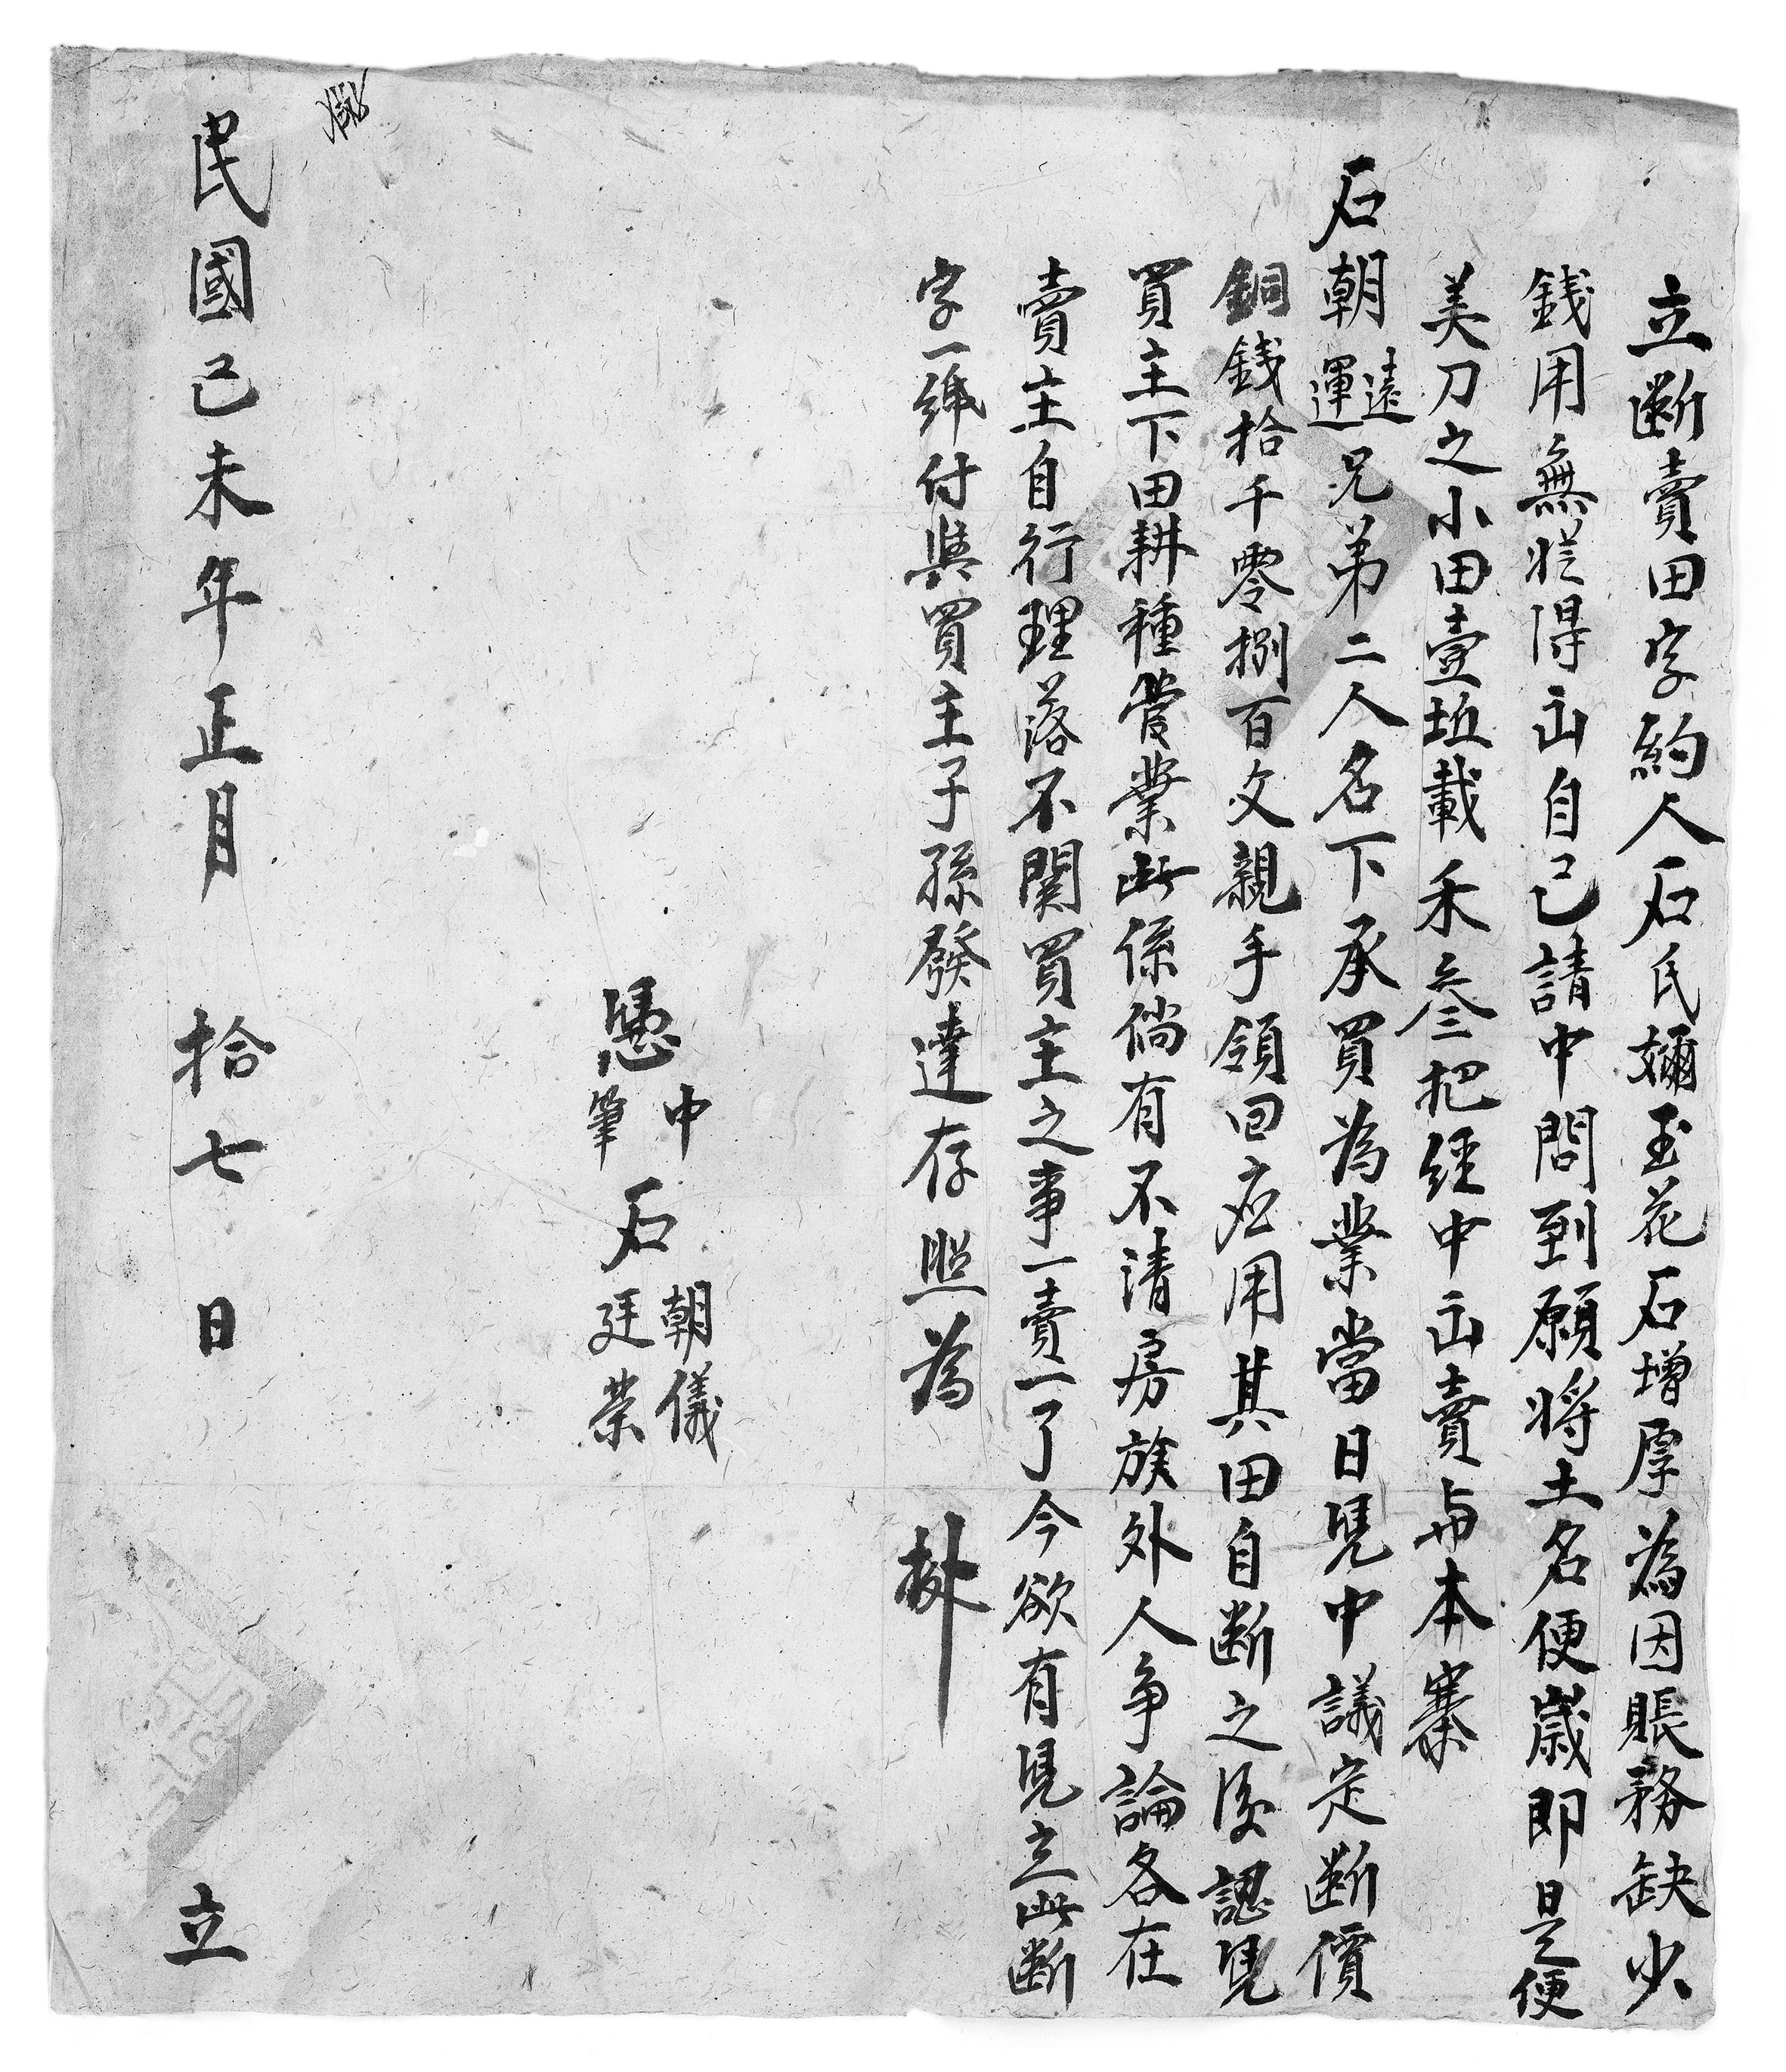 立断賣田字約人石氏嬭玉花石增厚為因賬務缺少
銭用無従得出自己請中問到願将土名便嵗即日是便
美刀之小田壹坵載禾叁把經中出賣与本寨
石朝遠運兄弟二人名下承買為業當日凴中議定断價
銅銭拾千零捌百文親手領回应用其田自断之後認凴
買主下田耕種管業此係倘有不清房族外人争論各在
賣主自行理落不関買主之事一賣一了今欲有凴立此断
字一紙付與買主子孫發達存照為㨿
憑中石朝儀
筆廷荣
民國己未年正月拾七日立